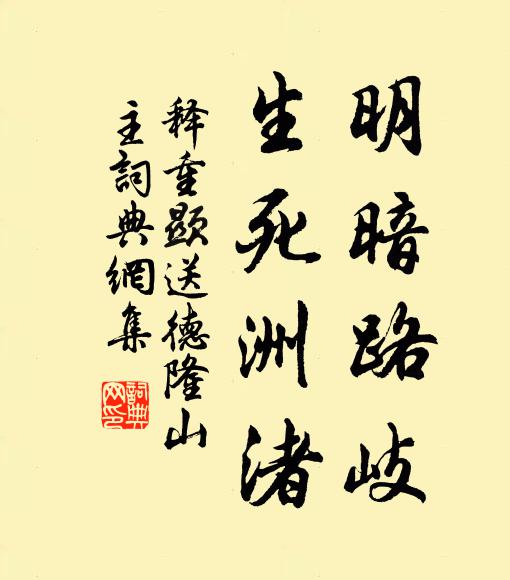 明暗路岐
生死洲渚
释重显送德隆山
主詞典網集
詞典
网印